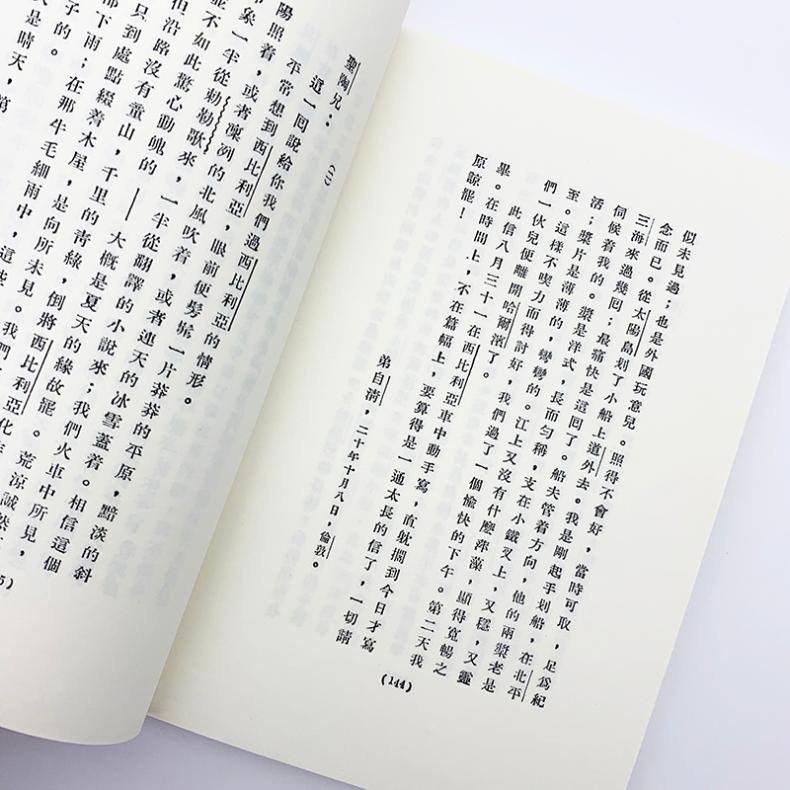 似未見過;也是外國玩意兒。照得不會好,當時可取,足爲紀
念而已。從太陽島划了小船上道外去。我是剛起手划船,在北平
三海來過幾回;最痛快是這回了。船夫管着方向,他的兩槳老是
伺候着我的。槳是洋式,長而勻稱,支在小鐵叉上,又穩,又靈
活;槳片是薄薄的,彎彎的。江上又沒有什麼萍藻,顯得寬暢之
至。這樣不喫力而得討好,我們過了一個愉快的下午。第二天我
們一伙兒便離開哈爾濱了。
此信八月三十一在西比利亞車中動手寫,直躭擱到今日才寫
畢。在時間上,不在篇幅上,要算得是一通太長的信了,一切請
原諒罷!
弟自清,二十年十月八日,倫敦。
(144)
(二)
聖陶兄:
這一回說給你我們過西比利亞的情形。
平常想到西比利亞,眼前便髣髴一片莽莽的平原,黯淡的斜
陽照着,或者凜冽的北風吹着,或者連天的冰雪蓋着。相信這個
象一半從勅勒歌來,一半從翻譯的小說來;我們火車中所見,
並不如此驚心動魄的——大概是夏天的緣故罷。荒涼誠然
沿路沒有童山,千里的青綠,倒將西比利亞化
只到處點綴着木屋,是向所未見。我們
下雨;在那牛毛細雨中,這些
子的。
是晴天,第
5)